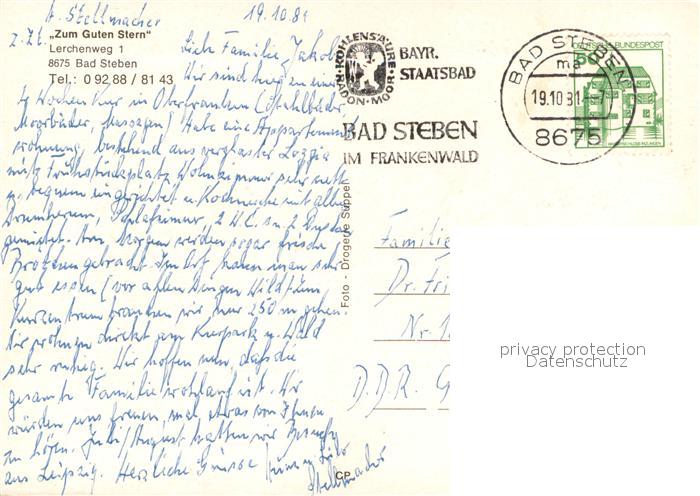 A. Stellmacher 19.10.81
z. Zt. „Zum Guten Stern"
Lerchenweg 1
8675 Bad Steben
Tel.: 0 92 88 / 81 43
Liebe Familie Jakob
Wir sind wegen einer
4 Wochen Kur in Oberfranken (Stahlbäder
Moorbäder, Massagen) Habe eine Appartement
wohnung, bestehend aus verglaster Loggia
mit Frühstücksplatz, Wohnzimmer sehr nett
u. bequem eingerichtet u. Kochnische mit allem
Drum herum, Schlafzimmer, 2 W.C. u. 2 Duschen
gemietet. Am Morgen werden sogar frische
Brötchen gebracht. Im Ort kann man sehr
gut essen (vor allen Dingen Wild) zum
Kurzentrum brauchen wir nur 250 m gehen.
Wir wohnen direkt am Kurpark u. Wald
sehr ruhig. Wir hoffen nun, daß die
gesamte Familie wohlauf ist. Wir
würden uns freuen, mal etwas von Ihnen
zu hören. Juli/August hatten wir Besuch
aus Leipzig. Herzliche Grüsse
Stellmacher
KOHLENSÄURE
RADON-MOOR
BAYR.
STAATSBAD
BAD STEBEN
IM FRANKENWALD
BAD STEBEN
ma
19.10.81
8675
DEUTSCHE BUNDESPOST
50
Foto - Drogerie Süppel
CP
Familie
Dr. Fri
Nr. 1
D.D.R. G
privacy protection
Datenschutz